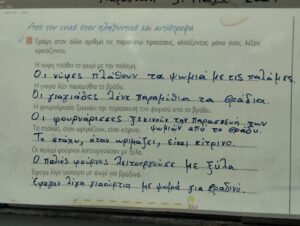 Από τον ενικό στον πληθυντικό και αντίστροφα
Γράψε στον άλλο αριθμό τις παρακάτω προτάσεις, αλλάζοντας μόνο όσες λέξεις
χρειάζονται.
Η νύφη πλάθει το ψωμί με την παλάμη.
Οι νύφες πλάθουν τα ψωμιά με τις παλάμες.
Η γιαγιά λέει παραμύθια το βράδυ.
Οι γιαγιάδες λένε παραμύθια τα βράδια.
Η φουρνάρισσα ξεκινάει την παρασκευή του ψωμιού από το βράδυ.
Οι φουρνάρισσες ξεκινούν την παρασκευή των
ψωμιών από το βράδυ.
Τα στάχυα, όταν ωριμάζουν, είναι κίτρινα.
Το στάχυ, όταν ωριμάζει, είναι κίτρινο.
Οι παλιοί φούρνοι λειτουργούσαν με ξύλα.
Ο παλιός φούρνος λειτουργούσε με ξύλα.
Έφαγα λίγο γιαούρτι με ψωμί για βραδινό.
Έφαγαν λίγα γιαούρτια με ψωμιά για βραδινό.